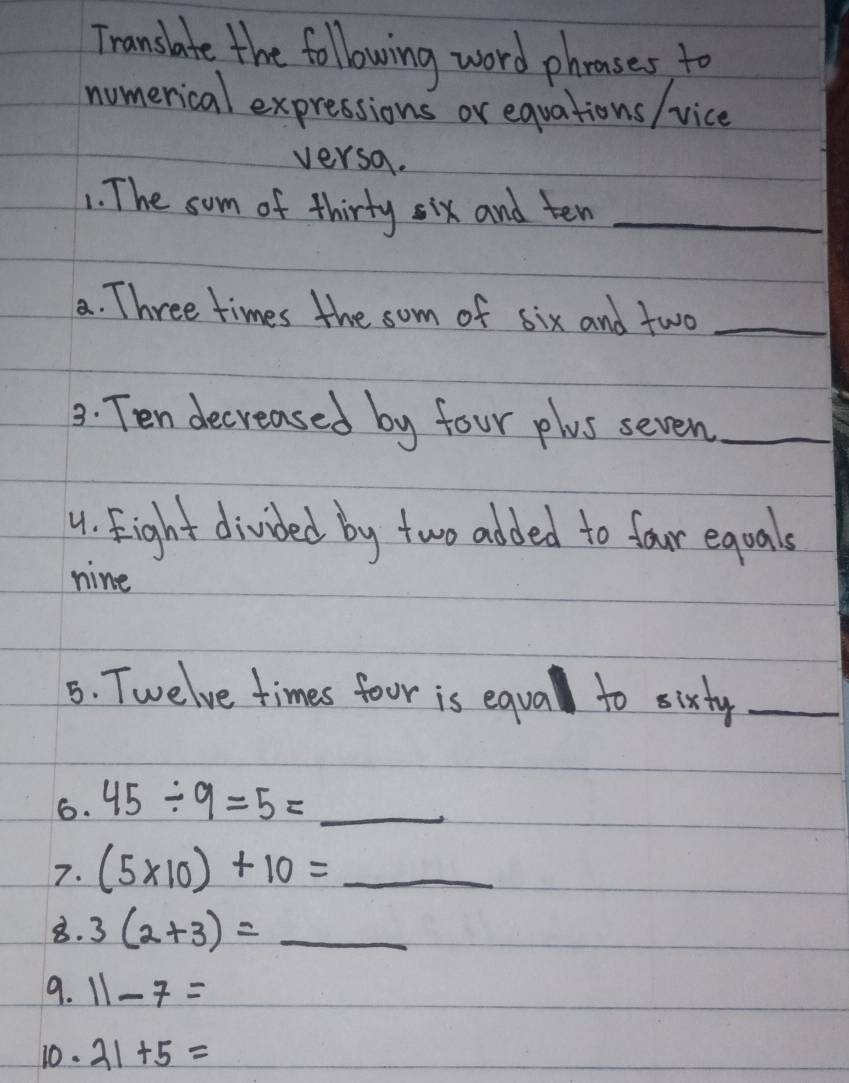 Translate the following word phrases to
numerical expressions or equations/vice
versa.
1. The sum of thirty six and ten ______
2. Three times the sum of six and two ______
3. Ten decreased by four plus seven ______
4. Eight divided by two added to four equals
nine
5. Twelve times four is equal to sixty ______
6. 45 ÷ 9 = 5 = ______
7. (5x10) + 10 = ______
8. 3 (2+3) = ______
9. 11 - 7 =
10. 21 + 5 =